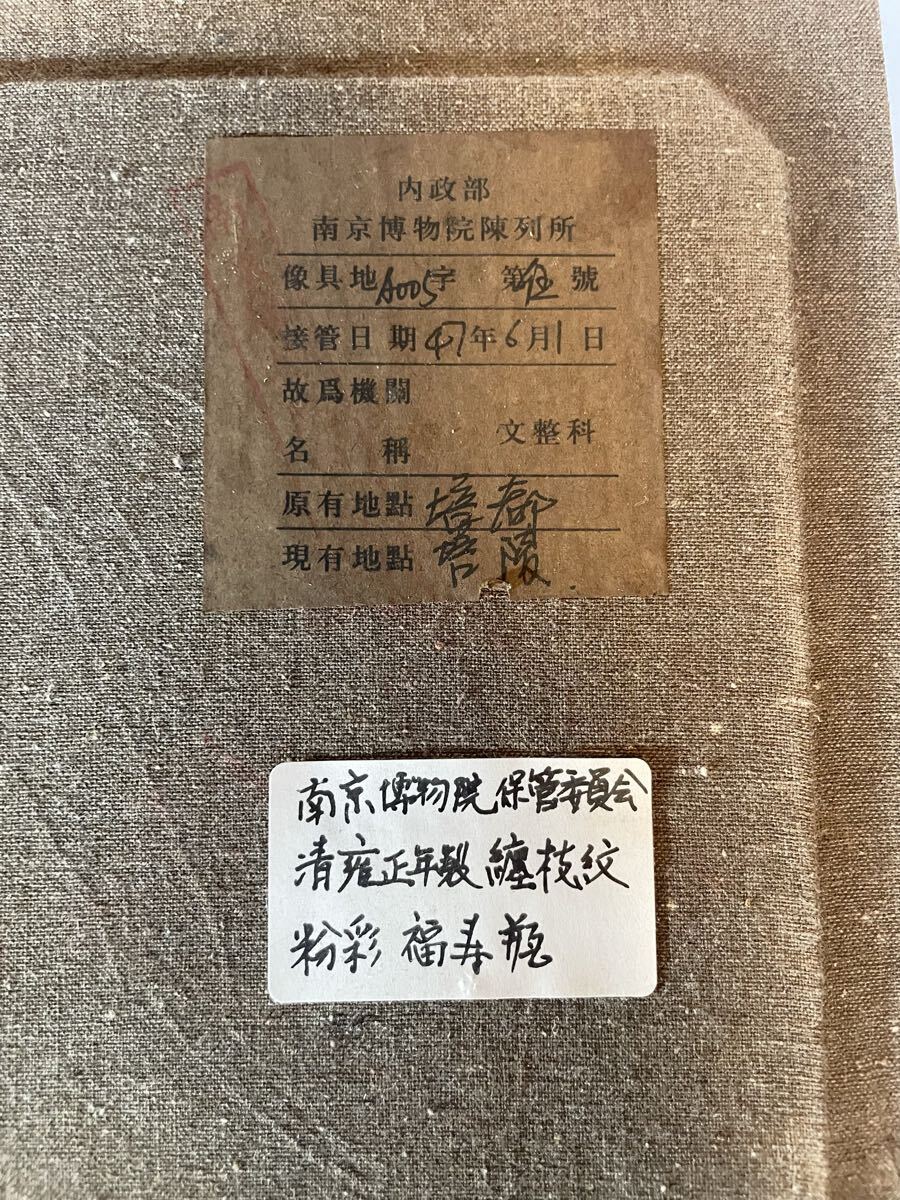 内政部
南京博物院陳列所
像具地A005字 第 號
接管日期47年6月1日
故爲機關
名稱 文整科
原有地點 培都
現有地點 培陵
南京博物院保管委員会
清雍正年製纏枝紋
粉彩 福寿瓶